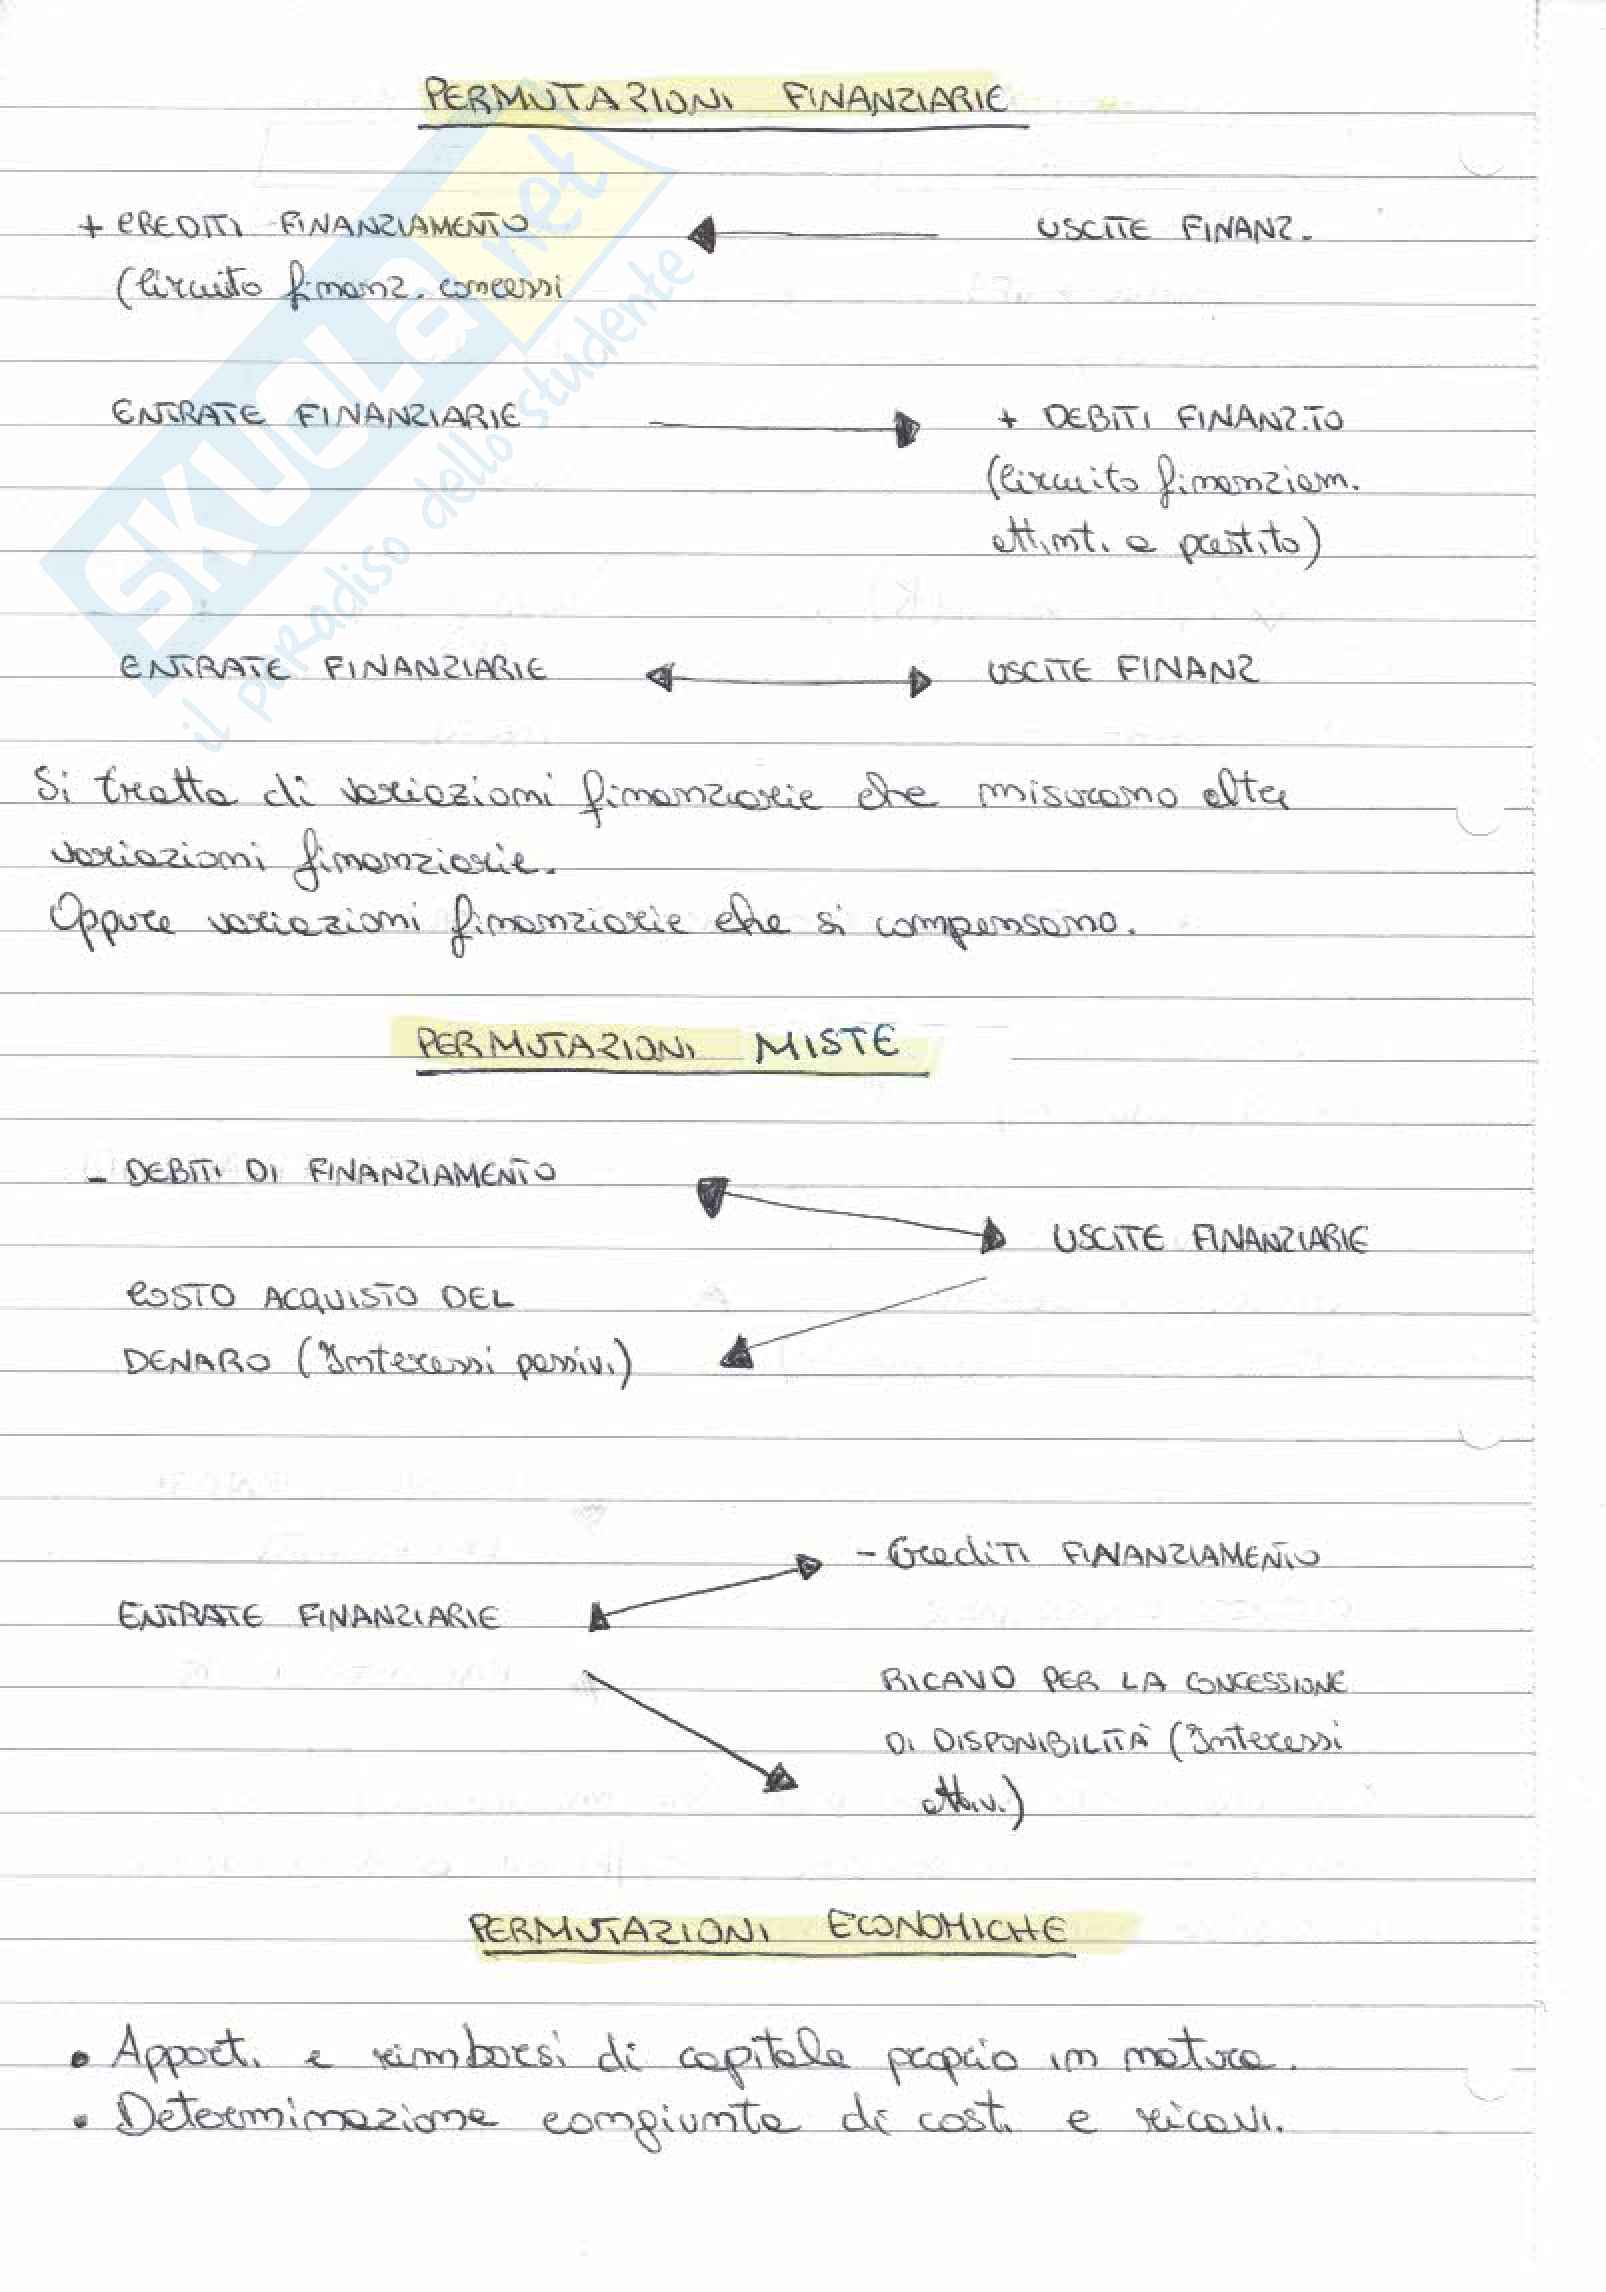 PERMUTAZIONI FINANZIARIE
+ CREDITI FINANZIAMENTO USCITE FINANZ.
(Circuito finanz. concessi
ENTRATE FINANZIARIE + DEBITI FINANZ.TO
(Circuito finanziam.
attinti a prestito)
ENTRATE FINANZIARIE USCITE FINANZ
Si tratta di variazioni finanziarie che misurano altre
variazioni finanziarie.
Oppure variazioni finanziarie che si compensano.
PERMUTAZIONI MISTE
- DEBITI DI FINANZIAMENTO
USCITE FINANZIARIE
COSTO ACQUISTO DEL
DENARO (Interessi passivi)
- Crediti FINANZIAMENTO
ENTRATE FINANZIARIE
RICAVO PER LA CONCESSIONE
DI DISPONIBILITÀ (Interessi
attivi)
PERMUTAZIONI ECONOMICHE
• Apporti e rimborsi di capitale proprio in natura.
• Determinazione congiunta di costi e ricavi.
SKUOLA.net
il paradiso dello studente